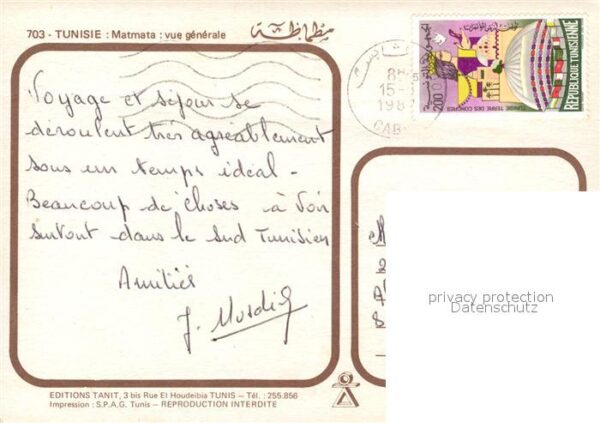 703 - TUNISIE : Matmata : vue générale مطماطة
Voyage et séjour se
déroulent très agréablement
sous un temps idéal -
Beaucoup de choses à voir
surtout dans le sud Tunisien
Amitiés
EDITIONS TANIT, 3 bis Rue El Houdeibia TUNIS - Tél. : 255.856
Impression : S.P.A.G. Tunis - REPRODUCTION INTERDITE
15-
198
GAB
200
TUNISIE TERRE DES CONGRES
REPUBLIQUE TUNISIENNE
privacy protection
Datenschutz